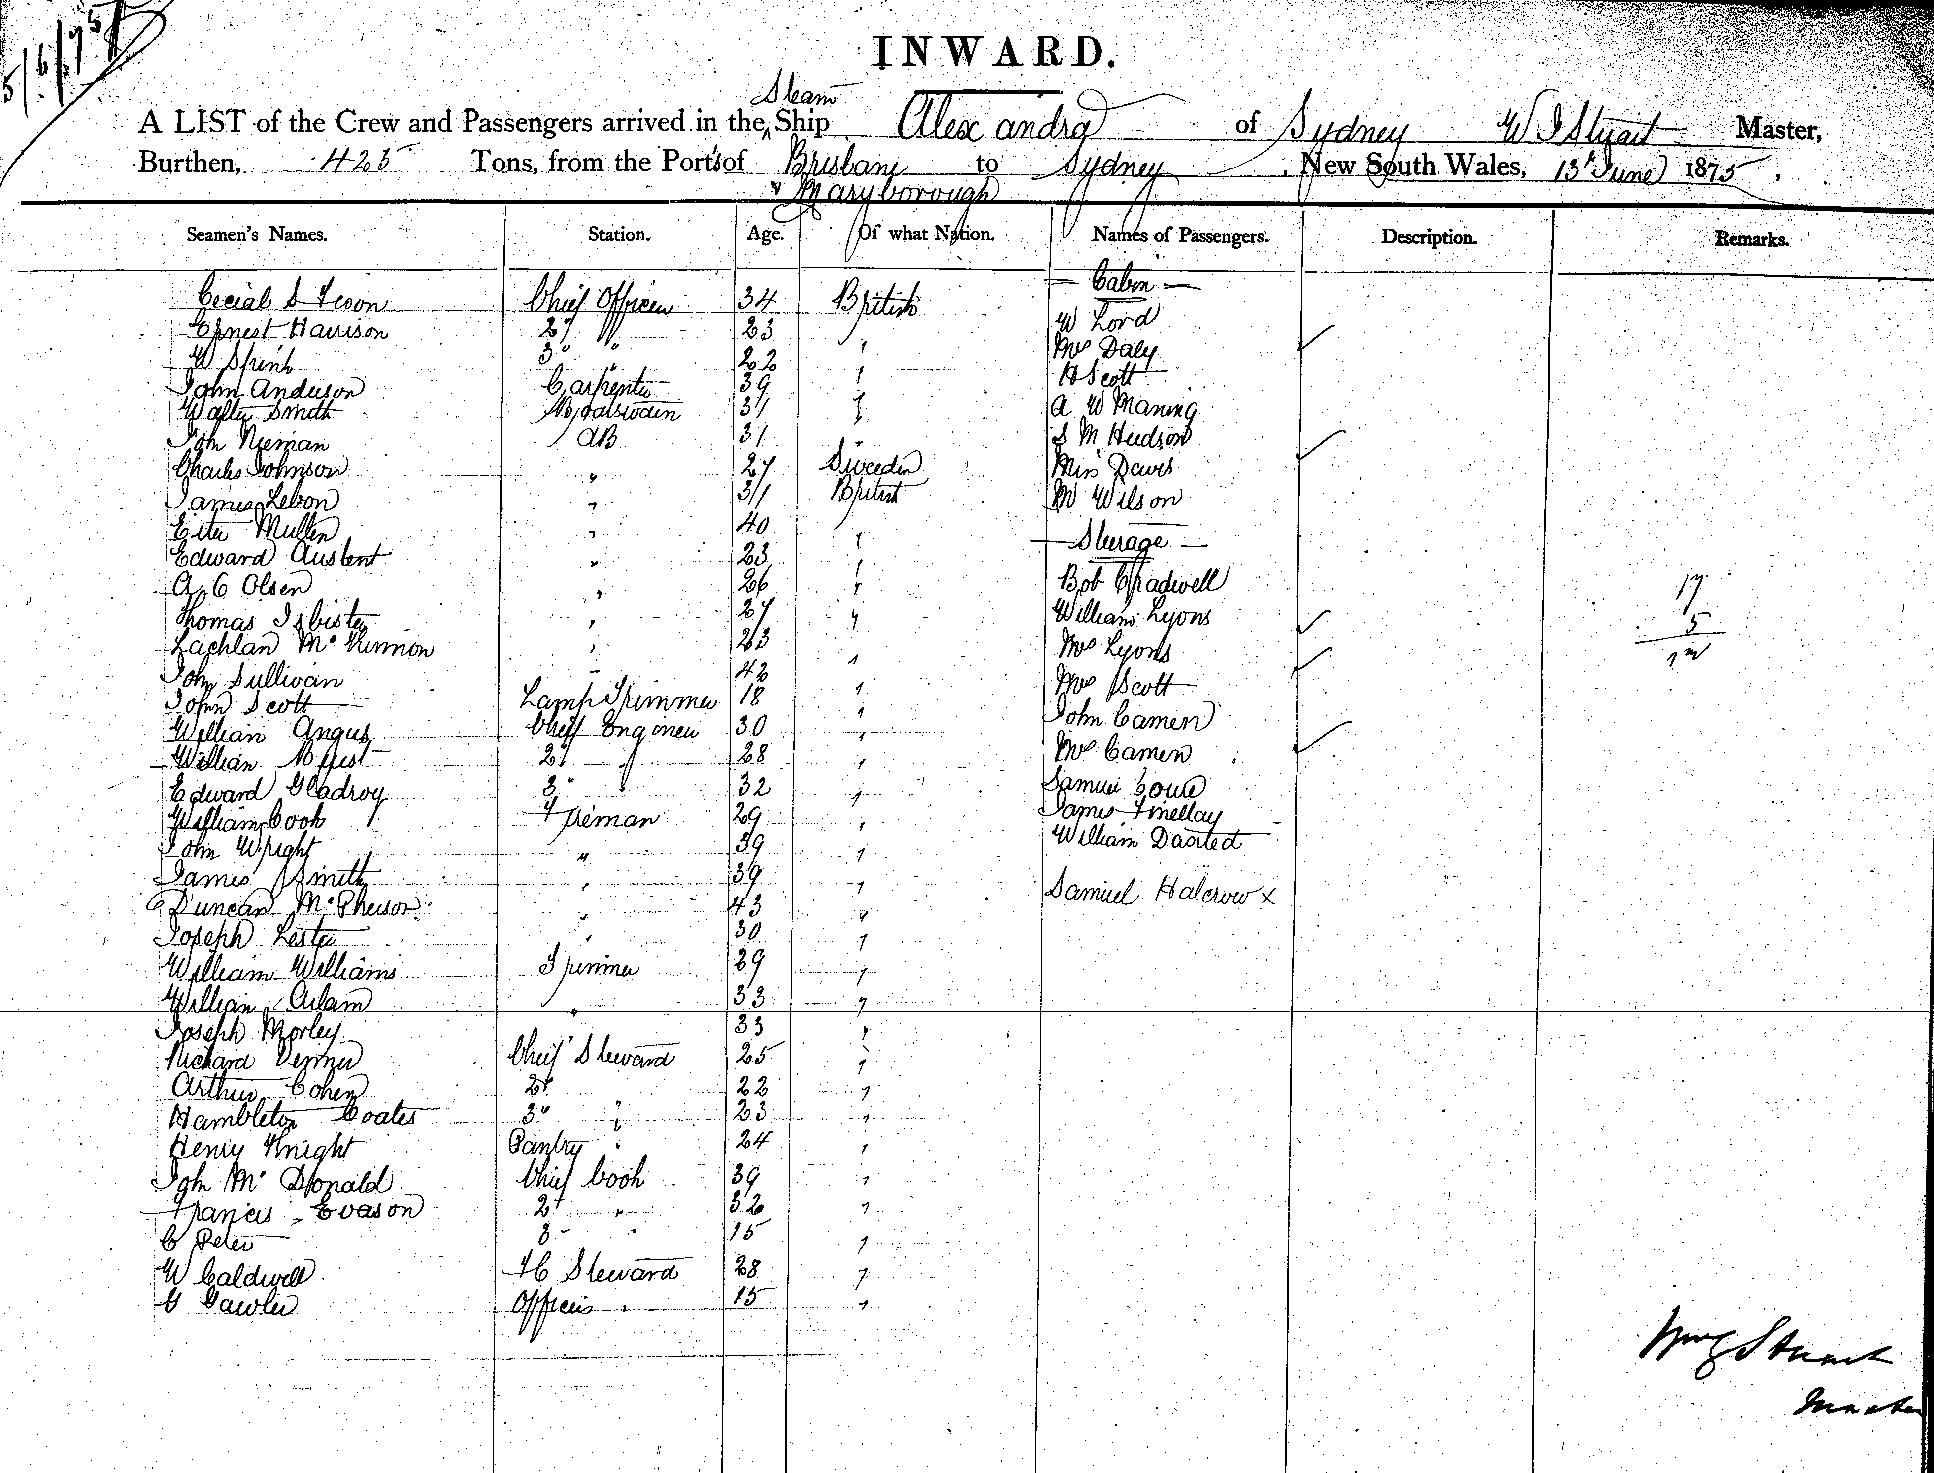 5/6/75
INWARD.
Steam
A LIST of the Crew and Passengers arrived in the Ship Alexandra of Sydney W J Stuart Master,
Burthen, 425 Tons, from the Port's of Brisbane to Sydney, New South Wales, 13th June 1875.
& Maryborough
Seamen's Names. Station. Age. Of what Nation. Names of Passengers. Description. Remarks.
Cabin
Cecial S 34 Chief Officer British
Ernest Harrison 2d " 23 " W Lord
W Spink 3d " 22 " Mrs Daly
John Anderson Carpenter 39 " H Scott
Walter Smith Boatswain 31 " A W Maning
John Nieman AB 31 " S M Hudson
Charles Johnson " 27 Sweeden Miss Davis
James Lebon " 31 British M Wilson
Mullen " 40 "
Steerage
Edward Austent " 23 "
A C Olsen " 26 " Bob Chadwell
Thomas Isbister " 27 " William Lyons
Lachlan McKinnon " 23 " Mrs Lyons
John Sullivan " 42 " Mrs Scott
John Scott Lamp Trimmer 18 "
William Angus Chief Engineer 30 " John Camen
William 2d " 28 " Mrs Camen
Edward Gladroy 3d " 32 " Samuel
William Cook Fireman 29 " James Finellay
John Wright " 39 " William
James Smith " 39 "
Duncan McPherson " 43 " Samuel Halcrow x
Joseph Lester " 30 "
William Williams Trimmer 29 "
William Adam " 33 "
Joseph Morley 33 "
Richard Chief Steward 25 "
Arthur Cohen 2d " 22 "
Hambleton Coates 3d " 23 "
Henry Knight Pantry " 24 "
John McDonald Chief Cook 39 "
Francis Evason 2d " 32 "
C Peter 3 " 15 "
W Caldwell FC Steward 28 "
G Gawler Officers " 15 "
17
5
Wm J Stuart
Master